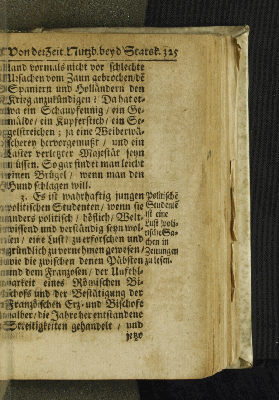 Von der Zeit. Nutzb. bey d Statsk. 325
land vormals nicht vor schlechte
Ursachen vom Zaun gebrochen / dē
Spaniern und Holländern den
Krieg anzukündigen? Da hat et-
wa ein Schaupfennig / ein Ge-
mälde / ein Kupferstich / ein Se-
gelstreichen; ja eine Weiberwä-
scherey hervorgemußt / und ein
Laster verletzter Majestät seyn
müssen. So gar findet man leicht
einen Brügel / wenn man den
Hund schlagen will.
3. Es ist wahrhaftig jungen
politischen Studenten / wenn sie
anders politisch / höflich / Welt-
wissend und verständig seyn wol-
len / eine Lust / zu erforschen und
gründlich zu vernehmen gewesen /
wie die zwischen denen Päbsten
und dem Franzosen / der Unfehl-
barkeit eines Römischen Bi-
schofs und der Bestätigung der
Französischen Erz- und Bischofe
halber / die Jahre her entstandene
Streitigkeiten gehandelt / und
jetzo
Politische
Studentē
ist eine
Lust politi-
sche Sa-
chen in
Zeitungen
zu lesen.